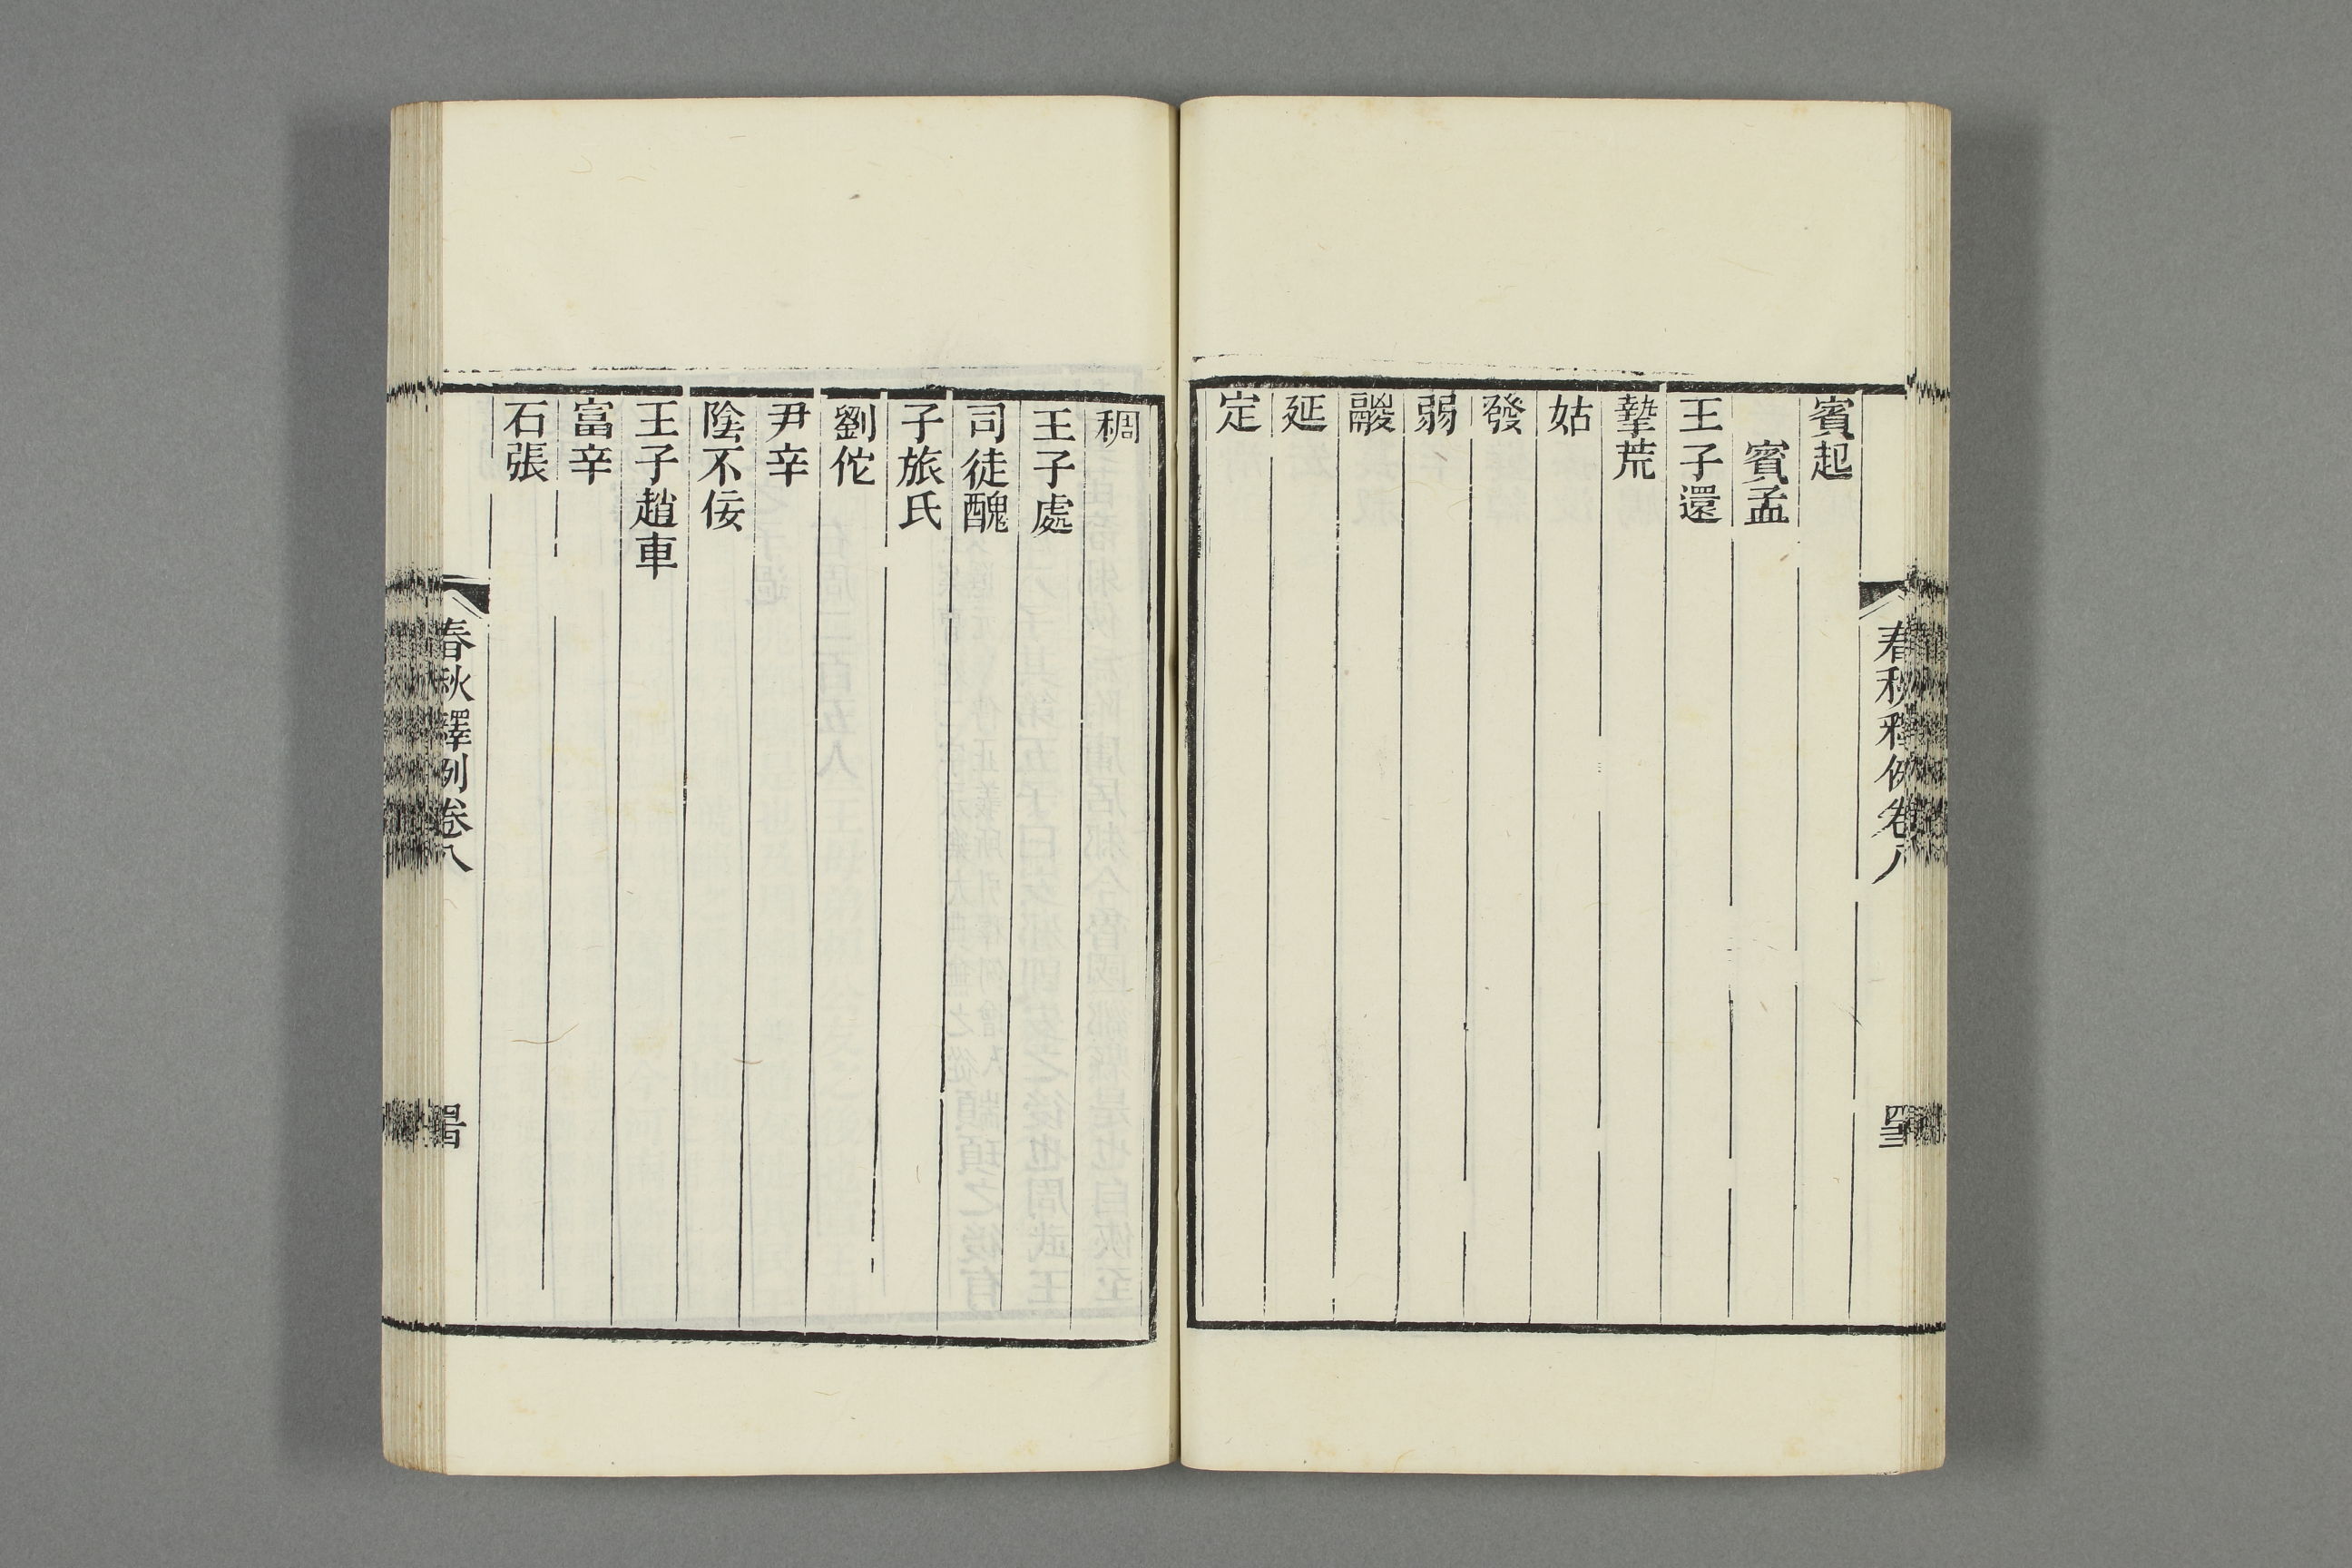 賓起
賓孟
王子還
摯荒
姑
發
弱
鬷
延
定
春秋釋例卷八
稠
王子處
司徒醜
子旅氏
劉佗
尹辛
陰不佞
王子趙車
富辛
石張
春秋釋例卷八